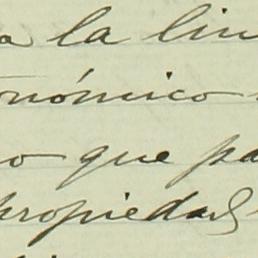 a la lin
onómico
o que pa
propiedad